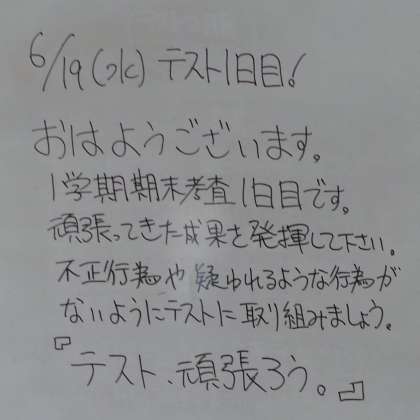 6/19(水) テスト1日目!
おはようございます。
1学期期末考査1日目です。
頑張ってきた成果を発揮して下さい。
不正行為や疑われるような行為が
ないようにテストに取り組みましょう。
『テスト、頑張ろう。』